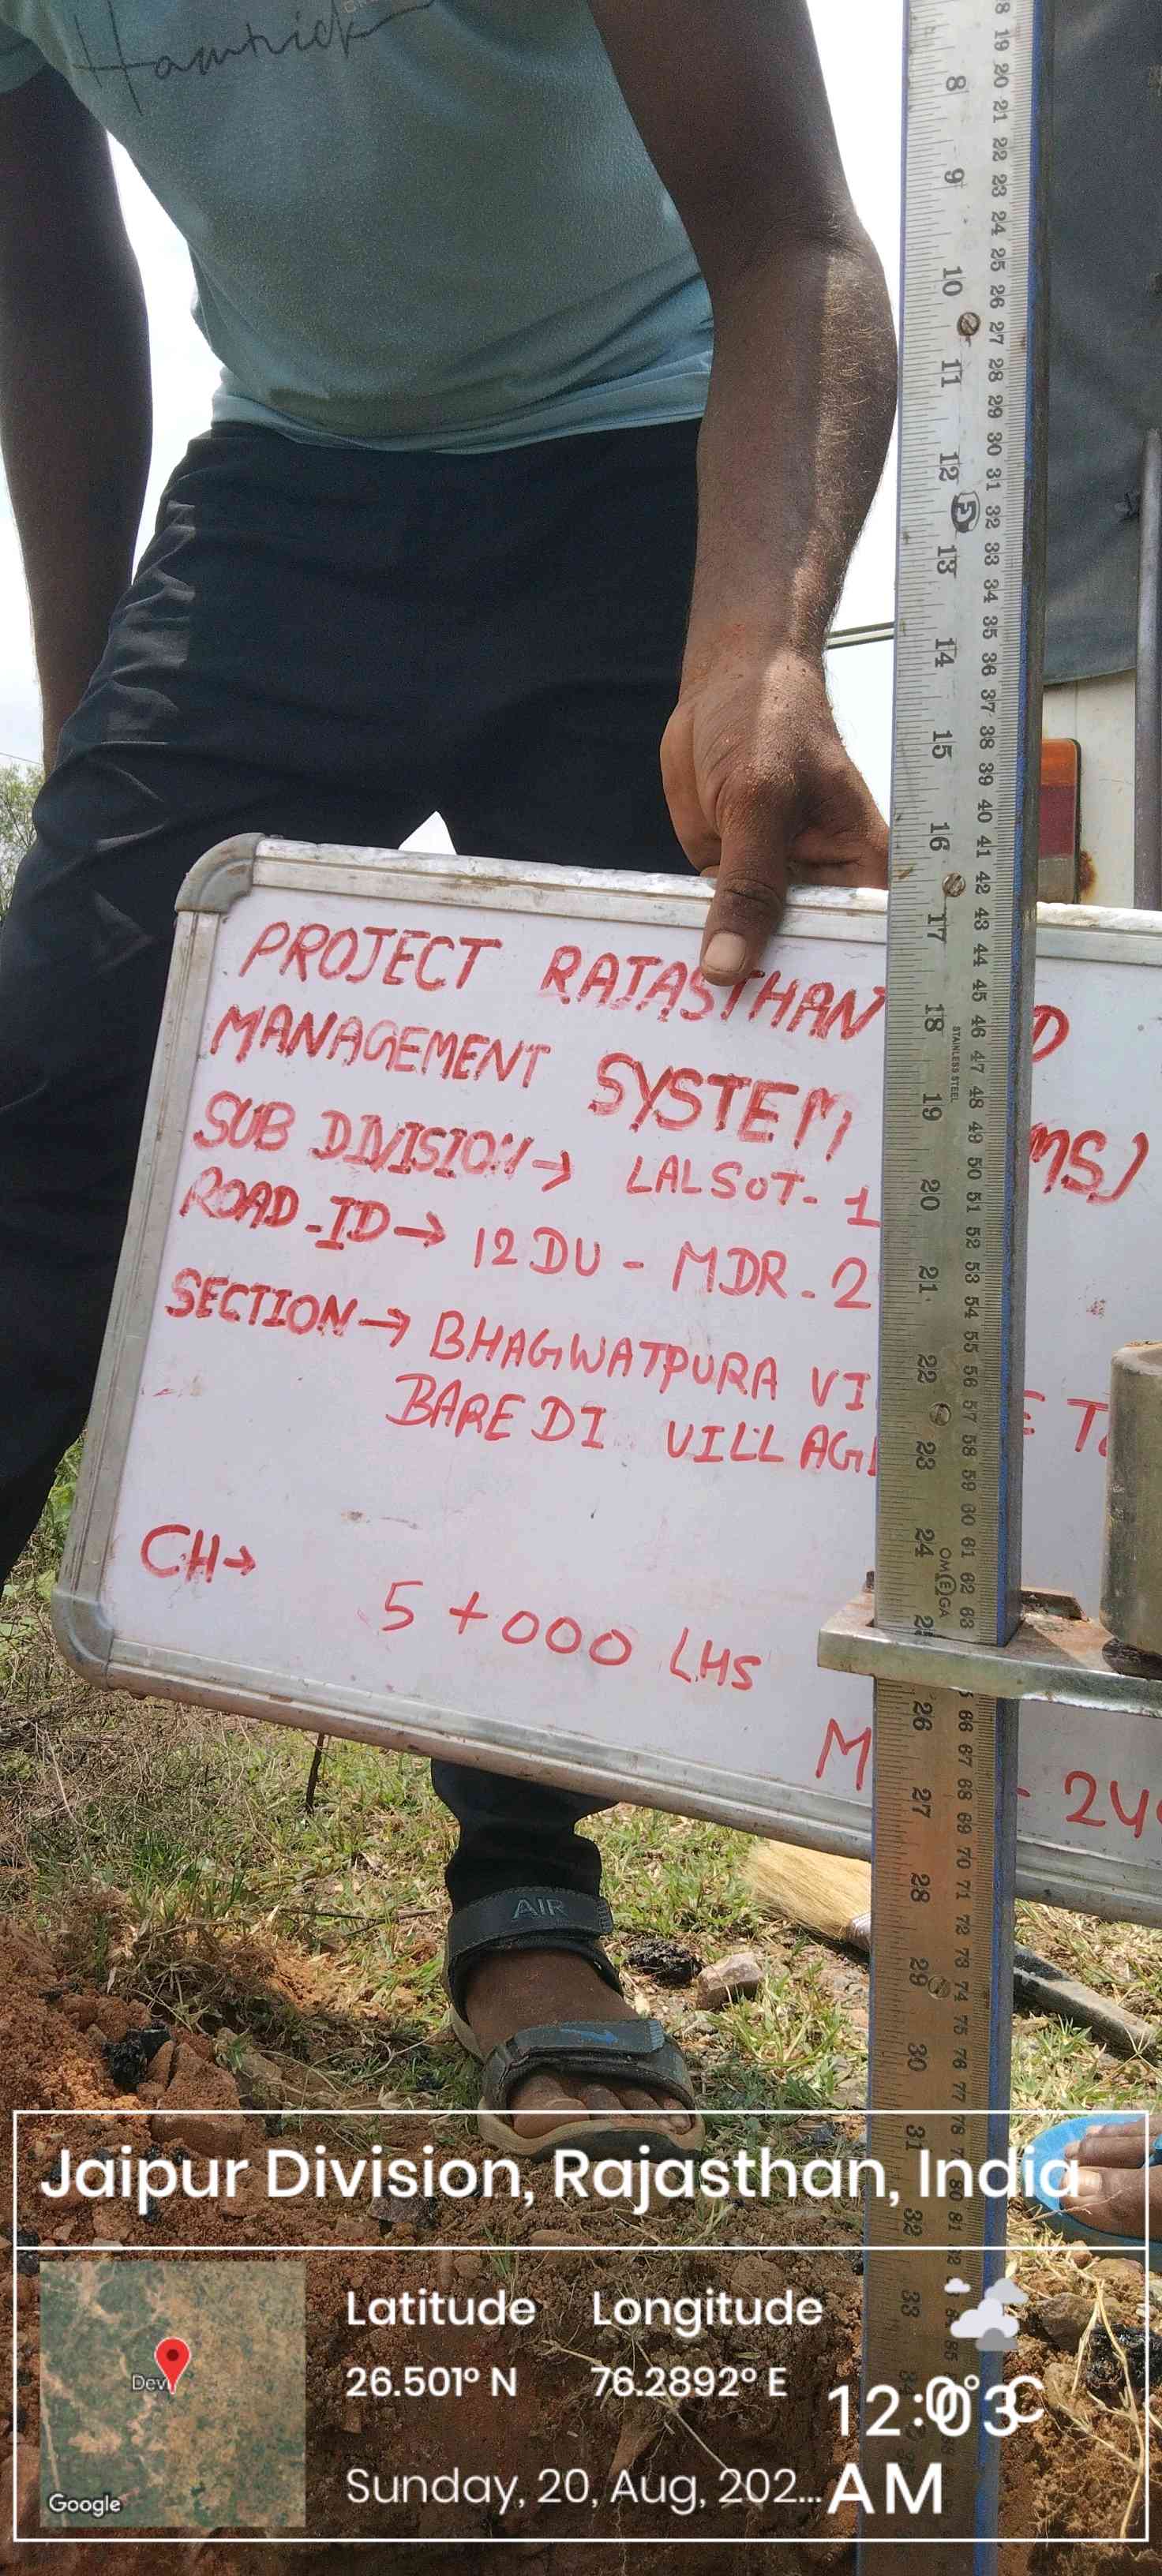 Hamrick
PROJECT RAJASTHAN D
MANAGEMENT SYSTEM MS)
SUB DIVISION → LALSOT- 1
ROAD-ID → 12DU - MDR.2
SECTION → BHAGWATPURA VI E To
BAREDI VILLAGE
CH→
5+000 LHS
M - 24
8 9 10 11 12 13 14 15 16 17 18 19 20 21 22 23 24 25 26 27 28 29 30 31 32 33
19 20 21 22 23 24 25 26 27 28 29 30 31 32 33 34 35 36 37 38 39 40 41 42 43 44 45 46 47 48 49 50 51 52 53 54 55 56 57 58 59 60 61 62 63
66 67 68 69 70 71 72 73 74 75 76 77 78
80 81
STAINLESS STEEL
OMEGA
AIR
Jaipur Division, Rajasthan, India
Latitude Longitude
26.501° N 76.2892° E
12:03
AM
Sunday, 20, Aug, 202...
Google